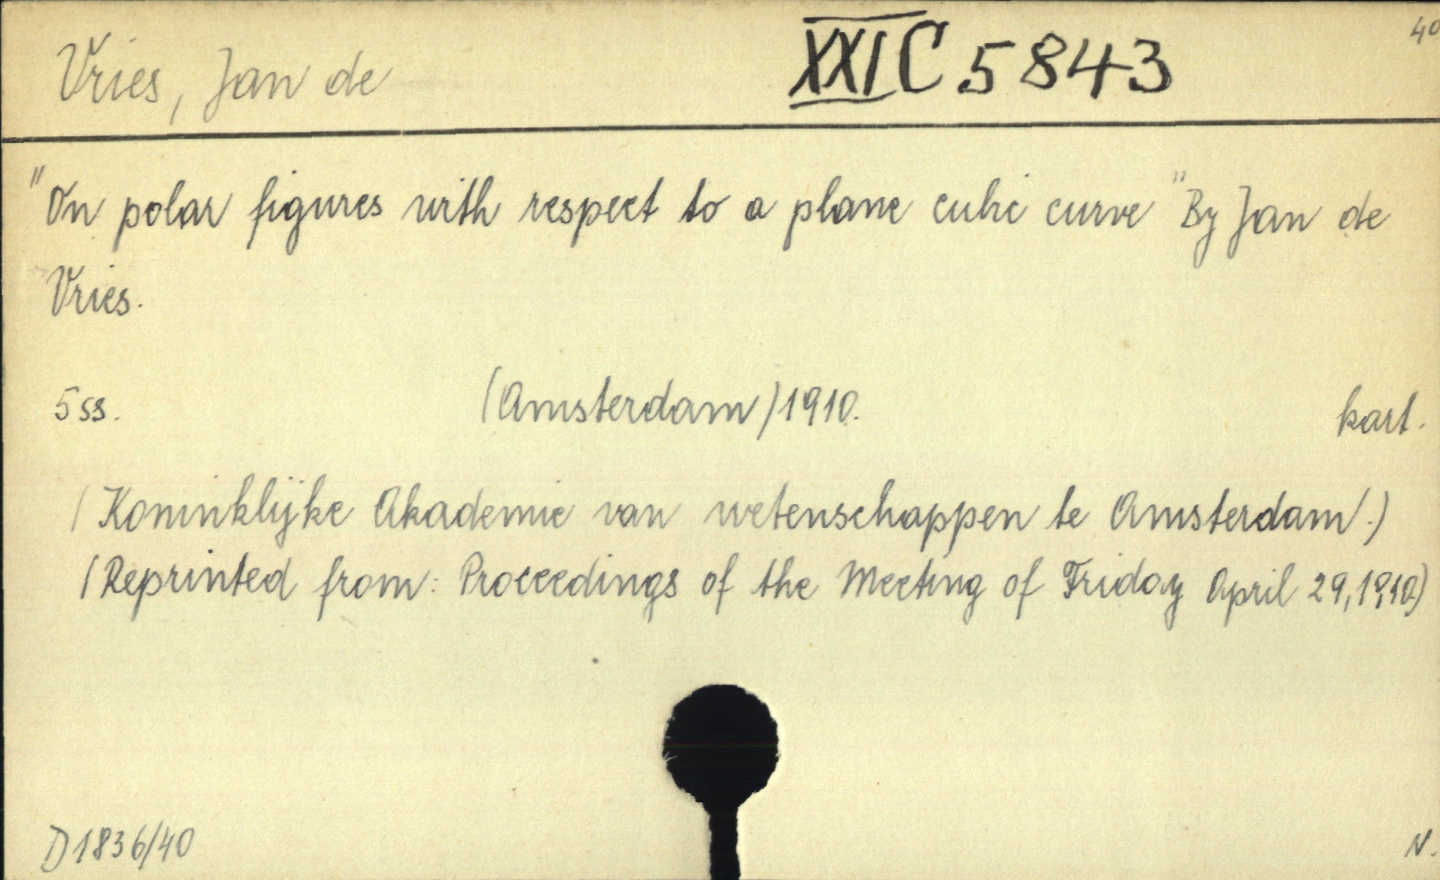 Vries, Jan de XXI C 5843 40
"On polar figures with respect to a plane cubic curve" By Jan de
Vries.
5 ss. (Amsterdam) 1910. kart.
(Koninklijke Akademie van wetenschappen te Amsterdam.)
(Reprinted from: Proceedings of the Meeting of Friday April 29, 1910)
D 1836/40 N.